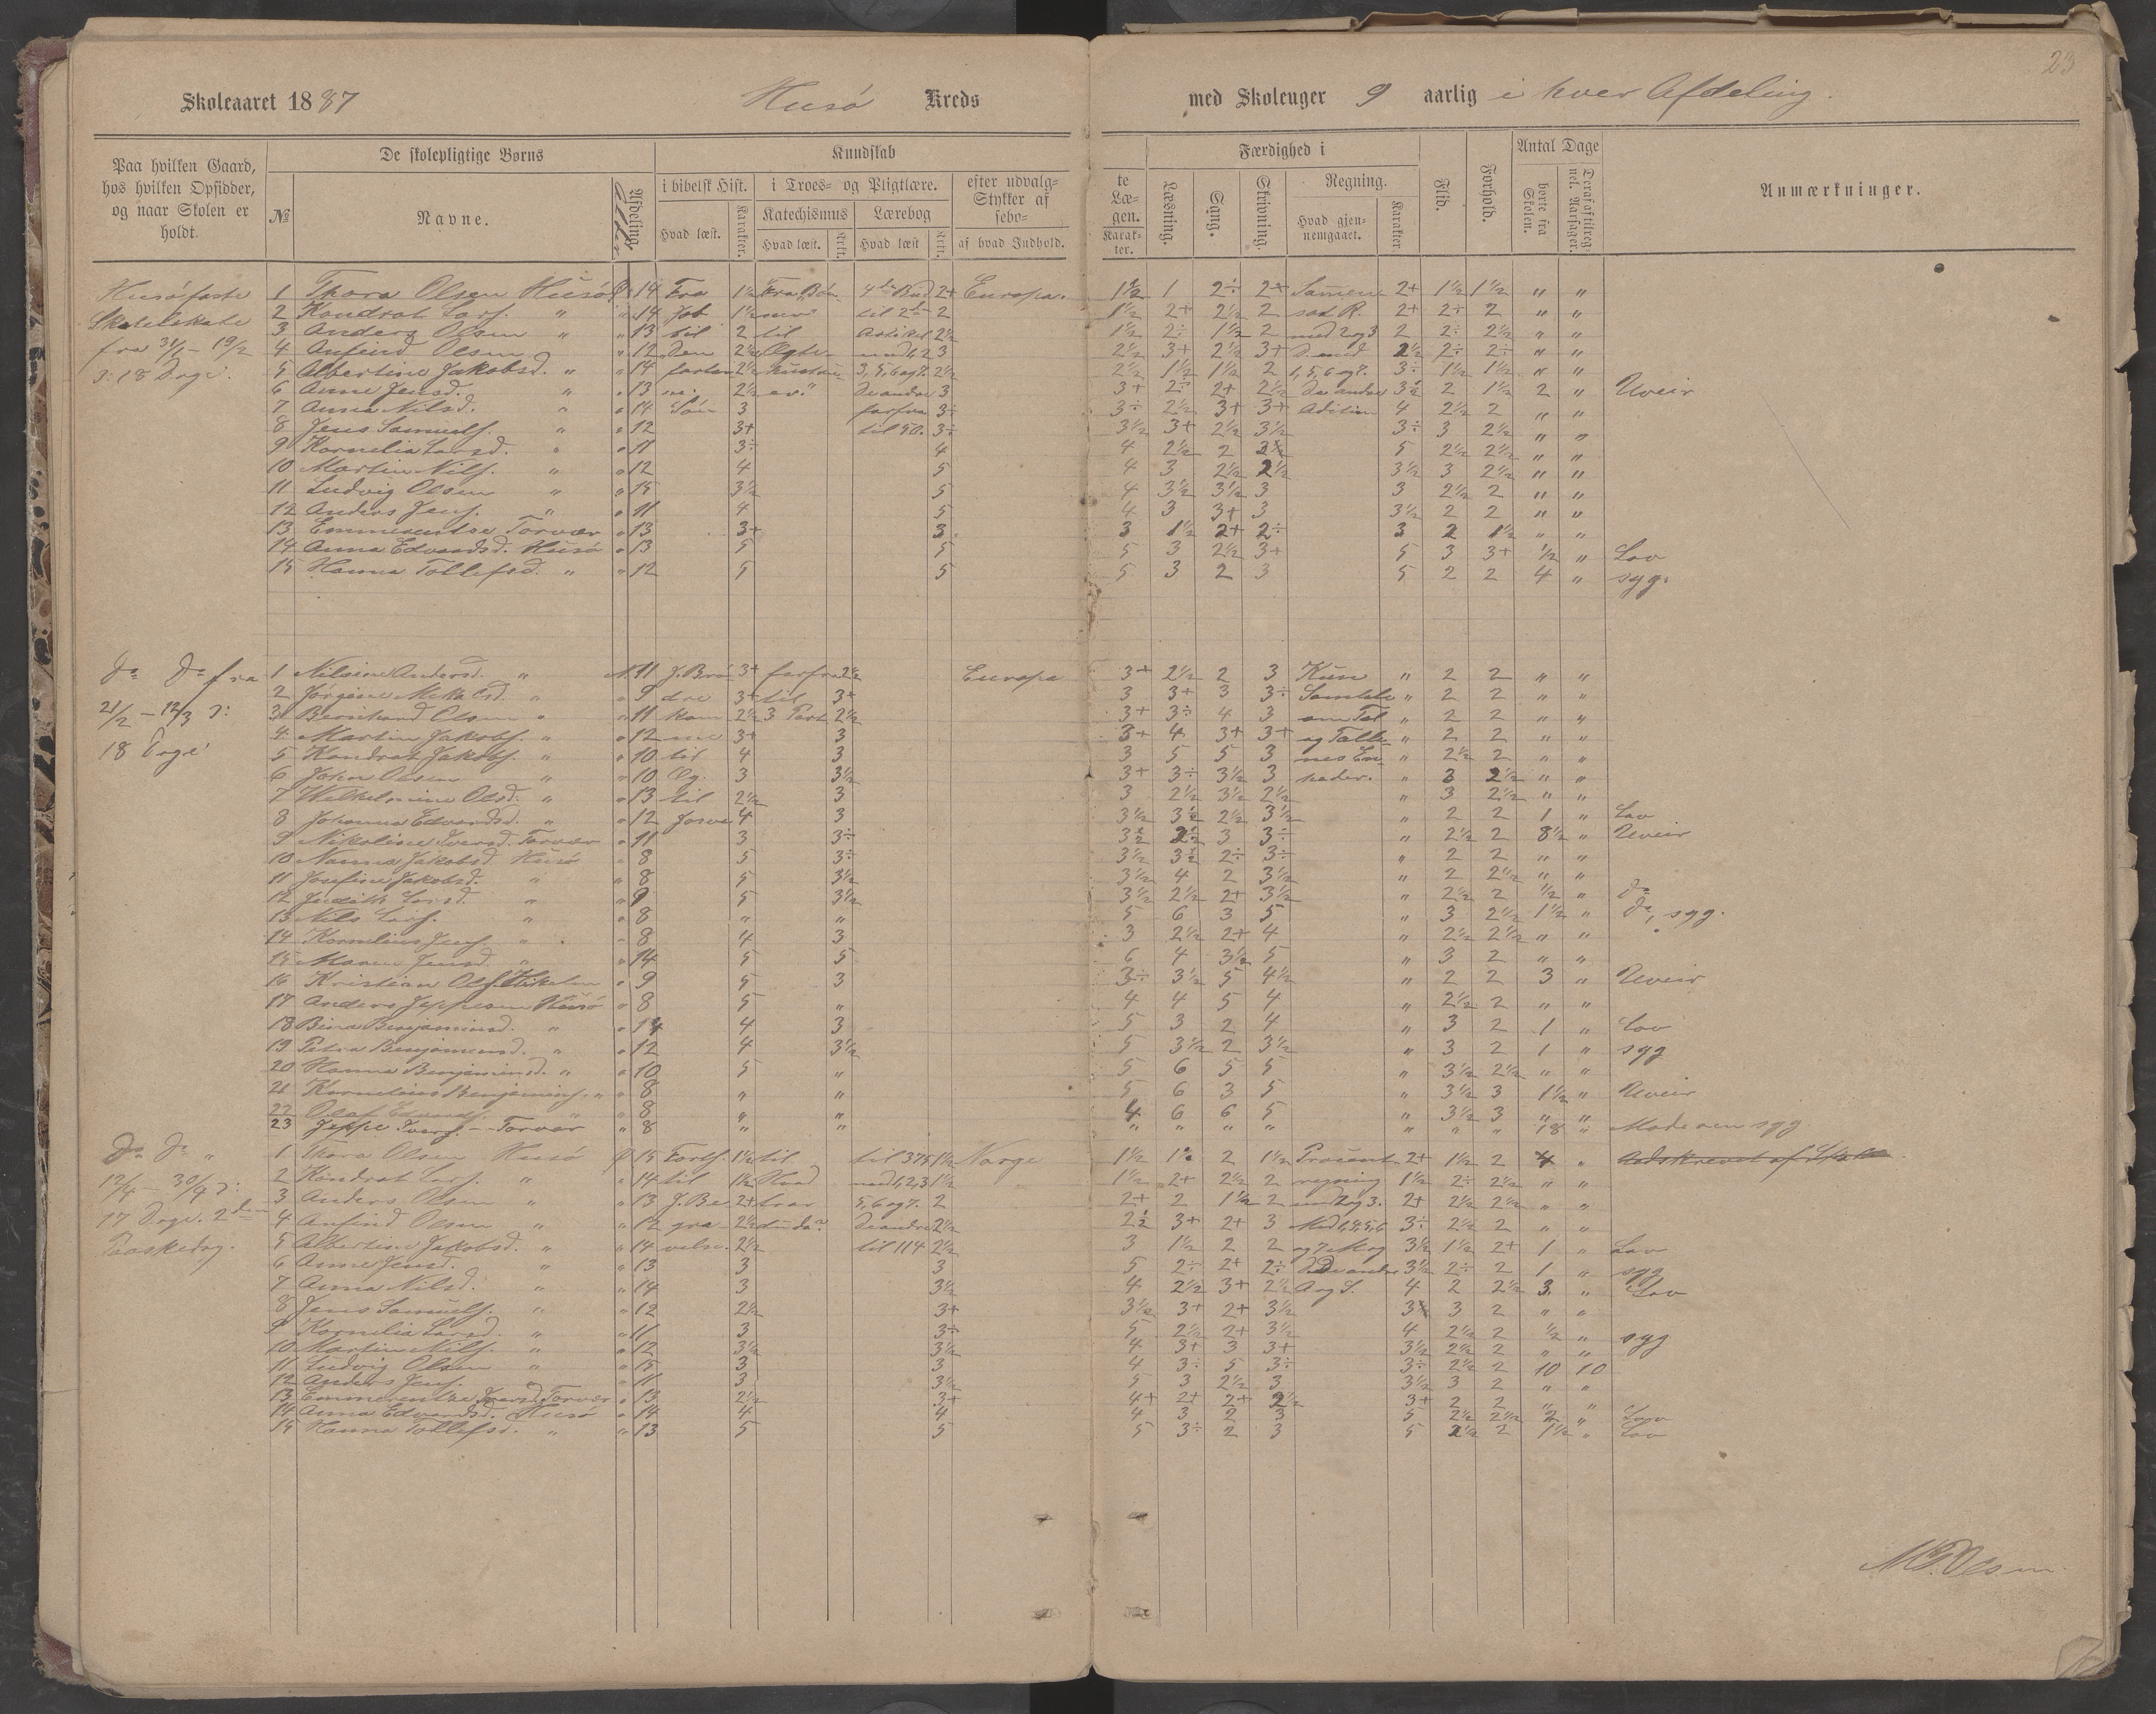 23
Skoleaaret 1887 Husö Kreds med Skoleuger 9 aarlig i hver Afdeling.
Paa hvilken Gaard, hos hvilken Opsidder, og naar Skolen er holdt.
De skolepligtige Børns
№ Navne. Afdeling. Alder
Kundskab
i bibelsk Hist. i Troes- og Pligtlære. efter udvalg- te
Katechismus Lærebog Stykker af Læ-
sebo- gen.
Hvad læst. Karakter. Hvad læst. Kakt. Hvad læst Kakt. af hvad Indhold. Karak- ter.
Færdighed i
Læsning. Sang. Skrivning. Regning. Hvad gjen- nemgaaet. Karakter
Flid. Forhold.
Antal Dage
borte fra Skolen. Deraf af tilreg- nel. Aarsager.
Anmærkninger.
1 Thora Olsen Husö 14 Fra 1½ 4de Bud 2+ Europa. 1½ 1 2÷ 2+ 2+ 1½ 1½ " "
2 Kondrat Lars. " " 14 Job 1½ til 2den 2 1½ 2+ 2½ 2 sat R. 2+ 2+ 2 " "
3 Anders Olsen " " 13 til 2 til Artikel 2½ 1½ 2÷ 1½ 2 med 2 og 3 2 2÷ 2½ " "
fra 31/1 - 19/2 4 Anfind Olsen " 12 den 2½ 3 2½ 3+ 2½ 3+ 2½ 2÷ 2÷ " "
3: 18 Dage. 5 Albertine Jakobsd. " " 14 2½ 3, 5, 6 og 7. 2½ 2½ 1½ 1½ 2 1, 5, 6 og 7. 3÷ 1½ 1½ " "
6 Anne Jensd. " " 13 2½ De andre 3 3+ 2÷ 2+ 2½ De andre 3½ 2 1½ 2 " Uveir
7 Anna Nilsd. " " 14 Sön 3 forfra 3÷ 3÷ 2½ 3+ 3+ Adition 4 2½ 2 " "
8 Jens Samuels. " " 12 3+ til 50. 3÷ 3½ 3+ 2½ 3½ 3÷ 3 2½ " "
9 Kornelia Larsd. " " 11 3÷ 4 4 2½ 2 5 2½ 2½ " "
10 Martin Nils. " " 12 4 5 4 3 2½ 2½ 3½ 3 2½ " "
11 Ludvig Olsen " " 15 3½ 5 4 3½ 3½ 3 3 2½ 2 " "
12 Anders Jens. " " 11 4 5 4 3 3+ 3 3½ 2 2 " "
13 Emmerentse Torvær " 13 3+ 3 3 1½ 2+ 2÷ 3 2 1½ " "
14 Anna Edvardsd. Husö " 13 5 5 5 3 2½ 3+ 5 3 3+ ½ " Lov
15 Hanna Tollefsd. " " 12 5 5 5 3 2 3 5 2 2 4 " syg.
Do Do fra 1 Nilsine Andersd. " 11 J. Brö 3+ forfra 2½ Europa 3+ 2½ 2 3 Kun " 2 2 " "
2 Jörgine Mekalsd. " " 9 dre 3+ til 3+ 3 3+ 3 3÷ Samtale " 2 2 " "
21/2 - 12/3 3: 3 Bernhard Olsen " " 11 kom 2½ 3 Part 2½ 3+ 3÷ 4 3 om Tal " 2 2 " "
4 Martin Jakobs. " " 12 me 3+ 3 3+ 4 3+ 3+ og Talle- " 2 2 " "
18 Dage 5 Kondrat Jakobs. " " 10 til 4 3 3 5 5 3 nes En- " 2½ 2 " "
6 Johan Olsen " " 10 Æg. 3 3½ 3+ 3÷ 3½ 3 heder. " 3 2½ " "
7 Wilhelmine Olsd. " " 13 til 2½ 3 3 2½ 3½ 2½ " 3 2½ " "
8 Johanna Edvardsd. " " 12 4 3 3½ 3½ 2½ 3½ " 2 2 1 " Lov
9 Nikoline Iversd. Torvær " 11 3 3÷ 3½ 2½ 3 3÷ " 2½ 2 8½ " Uveir
10 Nanna Jakobsd. Husö " 8 5 3÷ 3½ 3½ 2÷ 3÷ " 2 2 " "
11 Josefine Jakobsd. " " 8 5 3½ 3½ 4 2 3½ " 2 2½ " "
12 Judith Larsd. " " 9 5 3½ 3½ 2½ 2+ 3½ " 2½ 2 ½ " Do
13 Nils Lars. " " 8 " " 5 6 3 5 " 3 2½ 1½ " Do, syg.
14 Kornelius Jens. " " 8 4 3 3 2½ 2+ 4 " 2½ 2½ " "
15 Maren Jensd. " " 14 5 5 6 4 3½ 5 " 3 2 " "
16 Kristian Ols. " 9 5 3 3÷ 3½ 5 4½ " 2 2 3 " Uveir
17 Anders Jeppesen Husö " 8 5 " 4 4 5 4 " 2½ 2 " "
18 Bina Benjaminsd. " " 14 4 3 5 3 2 4 " 3 2 1 " Lov
19 Petra Benjaminsd. " " 12 4 3½ 5 3½ 2 3½ " 3 2 1 " syg
20 Hanna Benjaminsd. " " 10 5 " 5 6 5 5 " 3½ 2½ " "
21 Kornelius Benjamins. " " 8 " " 5 6 3 5 " 3½ 3 1½ " Uveir
22 Olaf Edvards. " " 8 " " 4 6 6 5 " 3½ 3 " "
23 Jeppe Ivers. - Torvær " 8 " " " " " " " " " 18 " Moderen syg
Do Do " 1 Thora Olsen Husö 15 Forts. 1½ til til 375 1½ Norge 1½ 2 1½ Procent 2+ 1½ 2 "
12/4 - 30/4 3: 2 Kondrat Lars. " " 14 til 1½ Hvad med 1, 2, 3 1½ 1½ 2+ 2½ 2 regning 1½ 2÷ 2½ " "
3 Anders Olsen " " 13 J. Be 2+ 5, 6 og 7. 2 2+ 2 1½ 2 2+ 2½ 2½ " "
17 Dage. 2den 4 Anfind Olsen " " 12 gra- 2½ De andre 2½ 2½ 3+ 2+ 3 Med 1, 4, 5, 6 3÷ 2½ 2 " "
Paaskedag. 5 Albertine Jakobsd. " " 14 velse. 2½ til 114 2½ 3 1½ 2 2 3½ 1½ 2+ 1 " Lov
6 Anne Jensd. " " 13 3 3 5 2÷ 2+ 2÷ De andre 3½ 2÷ 2 1 " syg
7 Anna Nilsd. " " 14 3 3½ 4 2½ 3+ 2½ A og S. 4 2 2½ 3 " Lov
8 Jens Samuels. " " 12 2½ 3+ 3½ 3+ 2+ 3½ 3 2 " "
9 Kornelia Larsd. " " 11 3 3÷ 5 2½ 2+ 3½ 4 2½ 2 ½ " syg
10 Martin Nils. " " 12 3½ 3½ 4 3+ 3 3+ 3½ 2½ 2 " "
11 Ludvig Olsen " " 15 3 3 4 3÷ 5 3÷ 3÷ 2½ 2 10 10
12 Anders Jens. " " 11 3 3½ 5 3 2½ 3 3½ 3 2 " "
13 Emmerentse Iversd. Torvær " 13 2½ 3+ 4+ 2+ 2+ 2½ 3+ 2 2 " "
14 Anna Edvardsd. Husö " 14 4 4 4 3 2 3 5 2½ 2½ 2 " Lov
15 Hanna Tollefsd. " " 13 5 5 5 3÷ 2 3 5 2½ 2 1½ " Lov